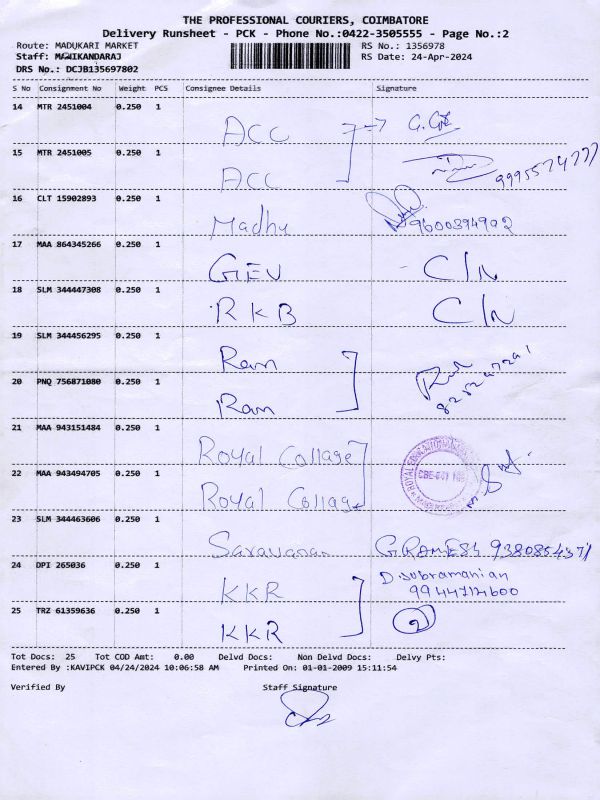 THE PROFESSIONAL COURIERS, COIMBATORE
Delivery Runsheet - PCK - Phone No.:0422-3505555 - Page No.:2
Route: MADUKARI MARKET RS No.: 1356978
Staff: MANIKANDARAJ RS Date: 24-Apr-2024
DRS No.: DCJB135697802
S No Consignment No Weight PCS Consignee Details Signature
14 MTR 2451004 0.250 1 ACC
15 MTR 2451005 0.250 1 ACC
16 CLT 15902893 0.250 1 Madhu 9600394902
17 MAA 864345266 0.250 1 GEV C/N
18 SLM 344447308 0.250 1 RKB C/N
19 SLM 344456295 0.250 1 Ram
20 PNQ 756871080 0.250 1 Ram
21 MAA 943151484 0.250 1 Royal Collage
22 MAA 943494705 0.250 1 Royal Collage
23 SLM 344463606 0.250 1 Saravanan G RAMESH 9380854371
24 DPI 265036 0.250 1 KKR D. subramanian
9944712600
25 TRZ 61359636 0.250 1 KKR 2
Tot Docs: 25 Tot COD Amt: 0.00 Delvd Docs: Non Delvd Docs: Delvy Pts:
Entered By :KAVIPCK 04/24/2024 10:06:58 AM Printed On: 01-01-2009 15:11:54
Verified By Staff Signature